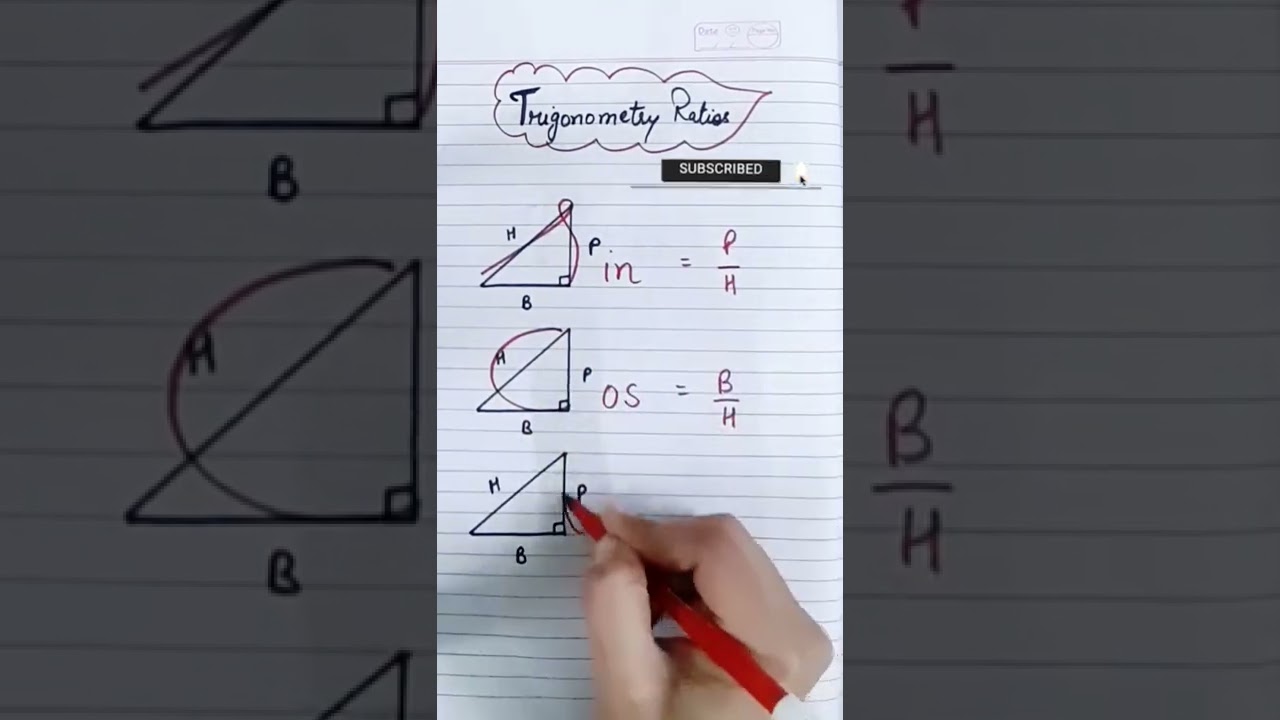 Date Page No.
Trigonometry Ratios
SUBSCRIBED
H P in = P/H
B
H P os = B/H
B
H P
B
B
H
B
H
B
H